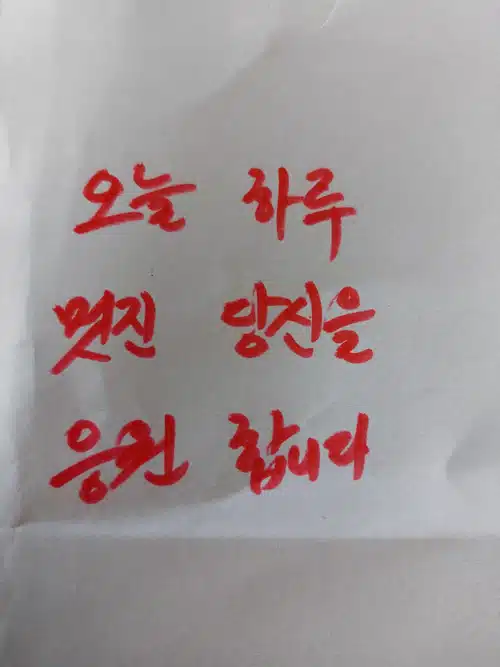 오늘 하루
멋진 당신을
응원 합니다